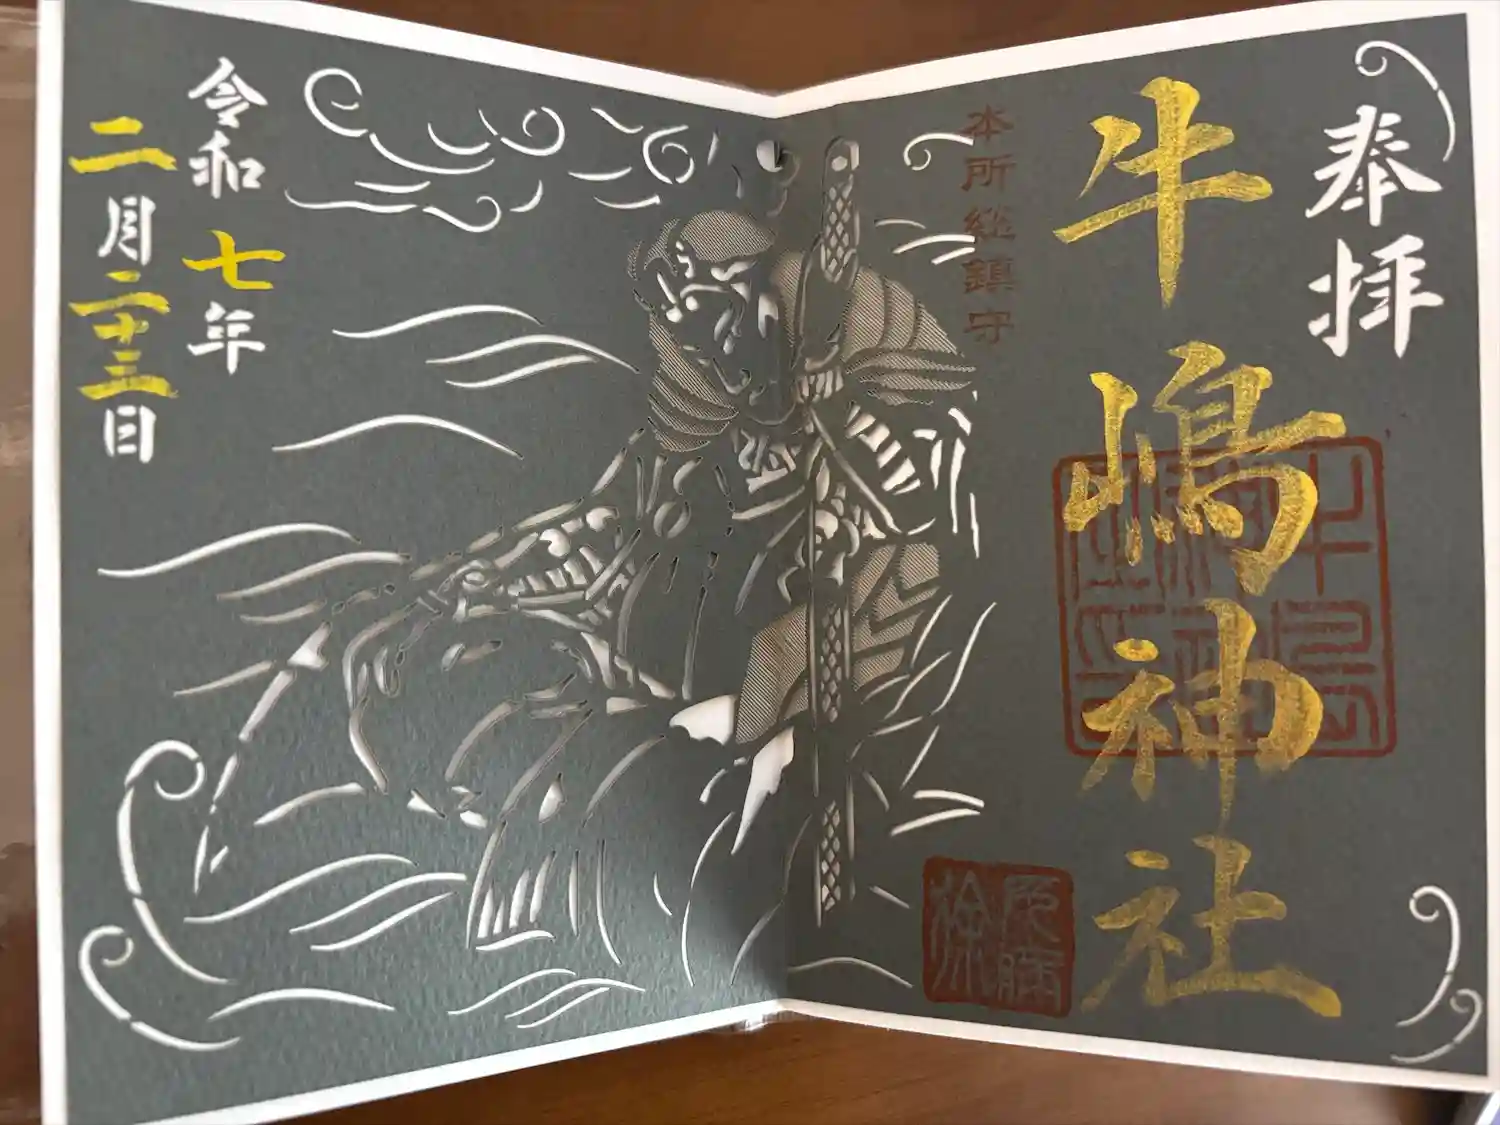 奉拝
牛嶋神社
本所総鎮守
令和七年
二月二十三日